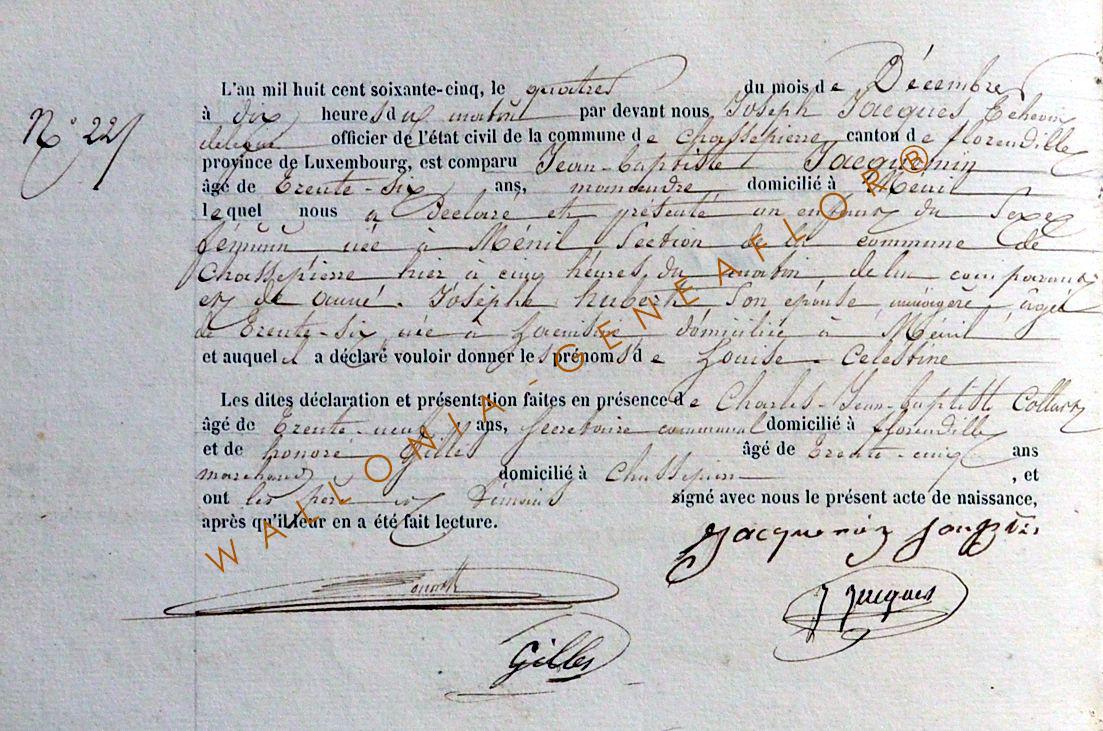 N° 22
L'an mil huit cent soixante-cinq, le quatres du mois de Décembre
à dix heures du matin par devant nous, Joseph Jacques Echevin
délégué officier de l'état civil de la commune de Chassepierre canton de florenville
province de Luxembourg, est comparu Jean-baptiste Jacquemin
âgé de Trente-six ans, domicilié à Ménil
lequel nous a déclaré et présenté un enfant du sexe
féminin née à Ménil Section de la commune de
Chassepierre hier à cinq héures du matin de lui comparant
et de Josèphe hubert Son épouse ménagère agée
de Trente-six née à domiciliée à Ménil
et auquel il a déclaré vouloir donner les prénoms de Louise-Celestine
Les dites déclaration et présentation faites en présence de Charles-Jean-baptiste Collart
âgé de Trente-neuf ans, Secretaire communal domicilié à florenville
et de honoré Gilles âgé de Trente-cinq ans
marchand domicilié à Chassepierre , et
ont les père et Témoins signé avec nous le présent acte de naissance,
après qu'il leur en a été fait lecture.
Jacquemin
J Jacques
Gilles
WALLONIA-GENEAFLOR®